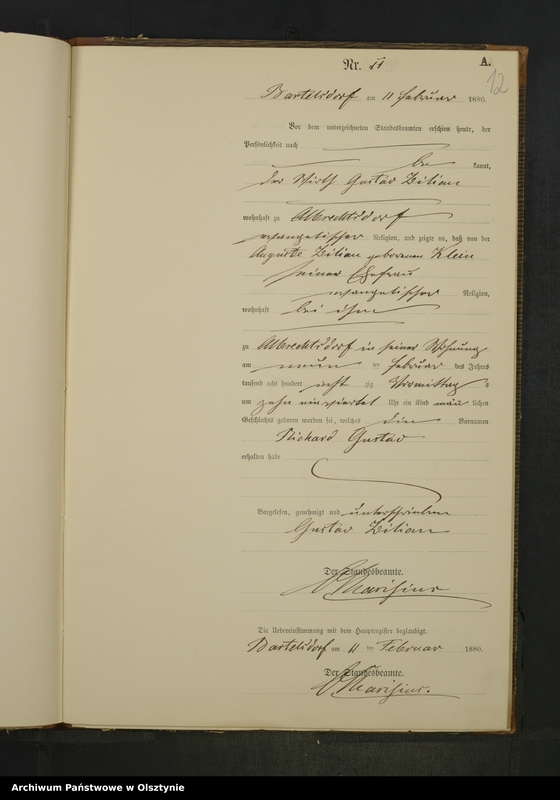 Nr. 11
A.
12
Bartelsdorf am 11 Februar 1880.
Vor dem unterzeichneten Standesbeamten erschien heute, der
Persönlichkeit nach
be kannt,
der Wirth Gustav Bilian
wohnhaft zu Albrechtsdorf
evangelischer Religion, und zeigte an, daß von der
Auguste Bilian geborenen Klein
seiner Ehefrau
evangelischer Religion,
wohnhaft bei ihm
zu Albrechtsdorf in seiner Wohnung
am neun ten Februar des Jahres
tausend acht hundert acht zig Vormittag s
um zehn einviertel Uhr ein Kind männ lichen
Geschlechts geboren worden sei, welches die Vornamen
Richard Gustav
erhalten habe
Vorgelesen, genehmigt und unterschrieben
Gustav Bilian
Der Standesbeamte.
Die Uebereinstimmung mit dem Hauptregister beglaubigt.
Bartelsdorf am 11 ten Februar 1880.
Der Standesbeamte.
Archiwum Państwowe w Olsztynie